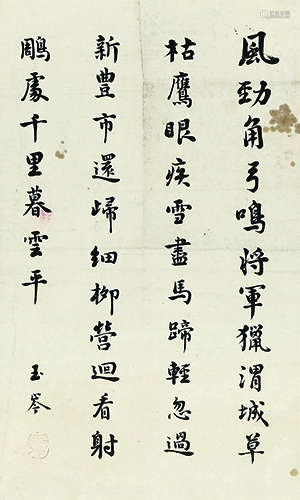 風勁角弓鳴將軍獵渭城草
枯鷹眼疾雪盡馬蹄輕忽過
新豐市還歸細柳營迴看射
鵰處千里暮雲平
玉岑